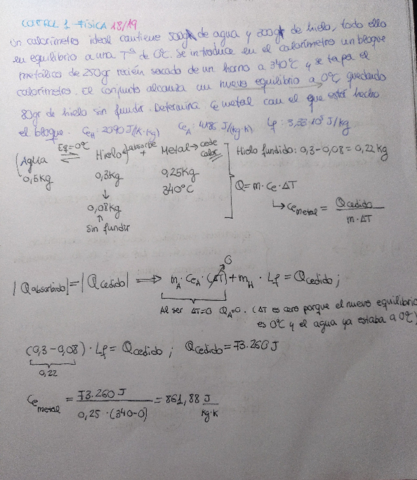 CONTROL 1 - FÍSICA 18/19
Un calorímetro ideal contiene 500gr de agua y 300gr de hielo, todo ello
en equilibrio a una Tª de 0ºC. Se introduce en el calorímetro un bloque
metálico de 250gr recién sacado de un horno a 340ºC y se tapa el
calorímetro. El conjunto alcanza un nuevo equilibrio a 0ºC quedando
80gr de hielo sin fundir. Determina Ce metal con el que está hecho
el bloque.
(Agua Eq=0ºC Hielo + Metal → cede calor)
0,5kg 0,3kg 0,25kg
340ºC
↓
0,08kg
↑
Sin fundir
Hielo fundido: 0,3-0,08= 0,22kg
Q= m · Ce · ΔT
↳ Ce metal = Qcedido / m·ΔT
|Qabsorbido|=|Qcedido| ⟹ mA · CeA · (ΔT) + mH · Lf = Qcedido ;
0
Al ser ΔT=0 QA=0. (ΔT es cero porque el nuevo equilibrio
es 0ºC y el agua ya estaba a 0ºC)
(0,3-0,08) · Lf = Qcedido ; Qcedido = 73.260 J
0,22
Ce metal = 73.260 J / 0,25 · (340-0) = 861,88 J / kg·K